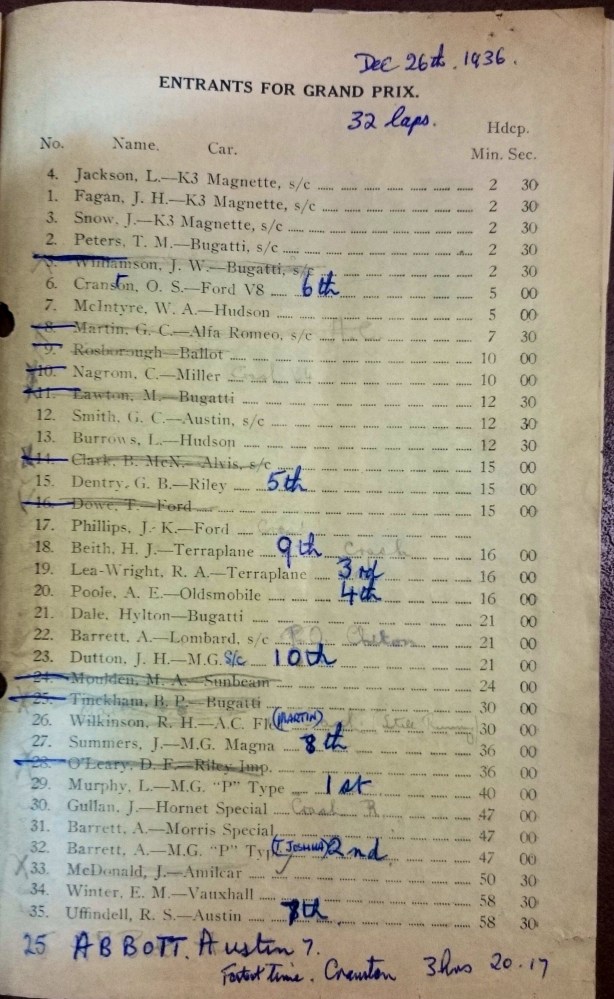 Dec 26th. 1936.
ENTRANTS FOR GRAND PRIX.
32 laps.
Hdcp.
No. Name. Car. Min. Sec.
4. Jackson, L.—K3 Magnette, s/c ........ 2 30
1. Fagan, J. H.—K3 Magnette, s/c ........ 2 30
3. Snow, J.—K3 Magnette, s/c ........ 2 30
2. Peters, T. M.—Bugatti, s/c ........ 2 30
5. Williamson, J. W.—Bugatti, s/c ........ 2 30
6. Cranston, O. S.—Ford V8 6th ........ 5 00
7. McIntyre, W. A.—Hudson ........ 5 00
8. Martin, G. C.—Alfa Romeo, s/c ........ 7 30
9. Rosborough—Ballot ........ 10 00
10. Nagrom, C.—Miller ........ 10 00
11. Lawton, M.—Bugatti ........ 12 30
12. Smith, G. C.—Austin, s/c ........ 12 30
13. Burrows, L.—Hudson ........ 12 30
14. Clark, B. McN.—Alvis, s/c ........ 15 00
15. Dentry, G. B.—Riley 5th ........ 15 00
16. Dowe, T.—Ford ........ 15 00
17. Phillips, J. K.—Ford ........
18. Beith, H. J.—Terraplane 9th crash ........ 16 00
19. Lea-Wright, R. A.—Terraplane 3rd ........ 16 00
20. Poole, A. E.—Oldsmobile 4th ........ 16 00
21. Dale, Hylton—Bugatti ........ 21 00
22. Barrett, A.—Lombard, s/c ........ 21 00
23. Dutton, J. H.—M.G. S/c 10th ........ 21 00
24. Moulden, M. A.—Sunbeam ........ 24 00
25. Tinckham, B. P.—Bugatti ........ 30 00
26. Wilkinson, R. H.—A.C. Fl (MARTIN) Still Running ........ 30 00
27. Summers, J.—M.G. Magna 8th ........ 36 00
28. O'Leary, D. F.—Riley Imp. ........ 36 00
29. Murphy, L.—M.G. "P" Type 1st ........ 40 00
30. Gullan, J.—Hornet Special ........ 47 00
31. Barrett, A.—Morris Special ........ 47 00
32. Barrett, A.—M.G. "P" Typ (T. JOSHUA) 2nd ........ 47 00
X 33. McDonald, J.—Amilcar ........ 50 30
34. Winter, E. M.—Vauxhall ........ 58 30
35. Uffindell, R. S.—Austin 7th ........ 58 30
25 ABBOTT. Austin 7.
Fastest Time. Cranston 3hrs 20.17